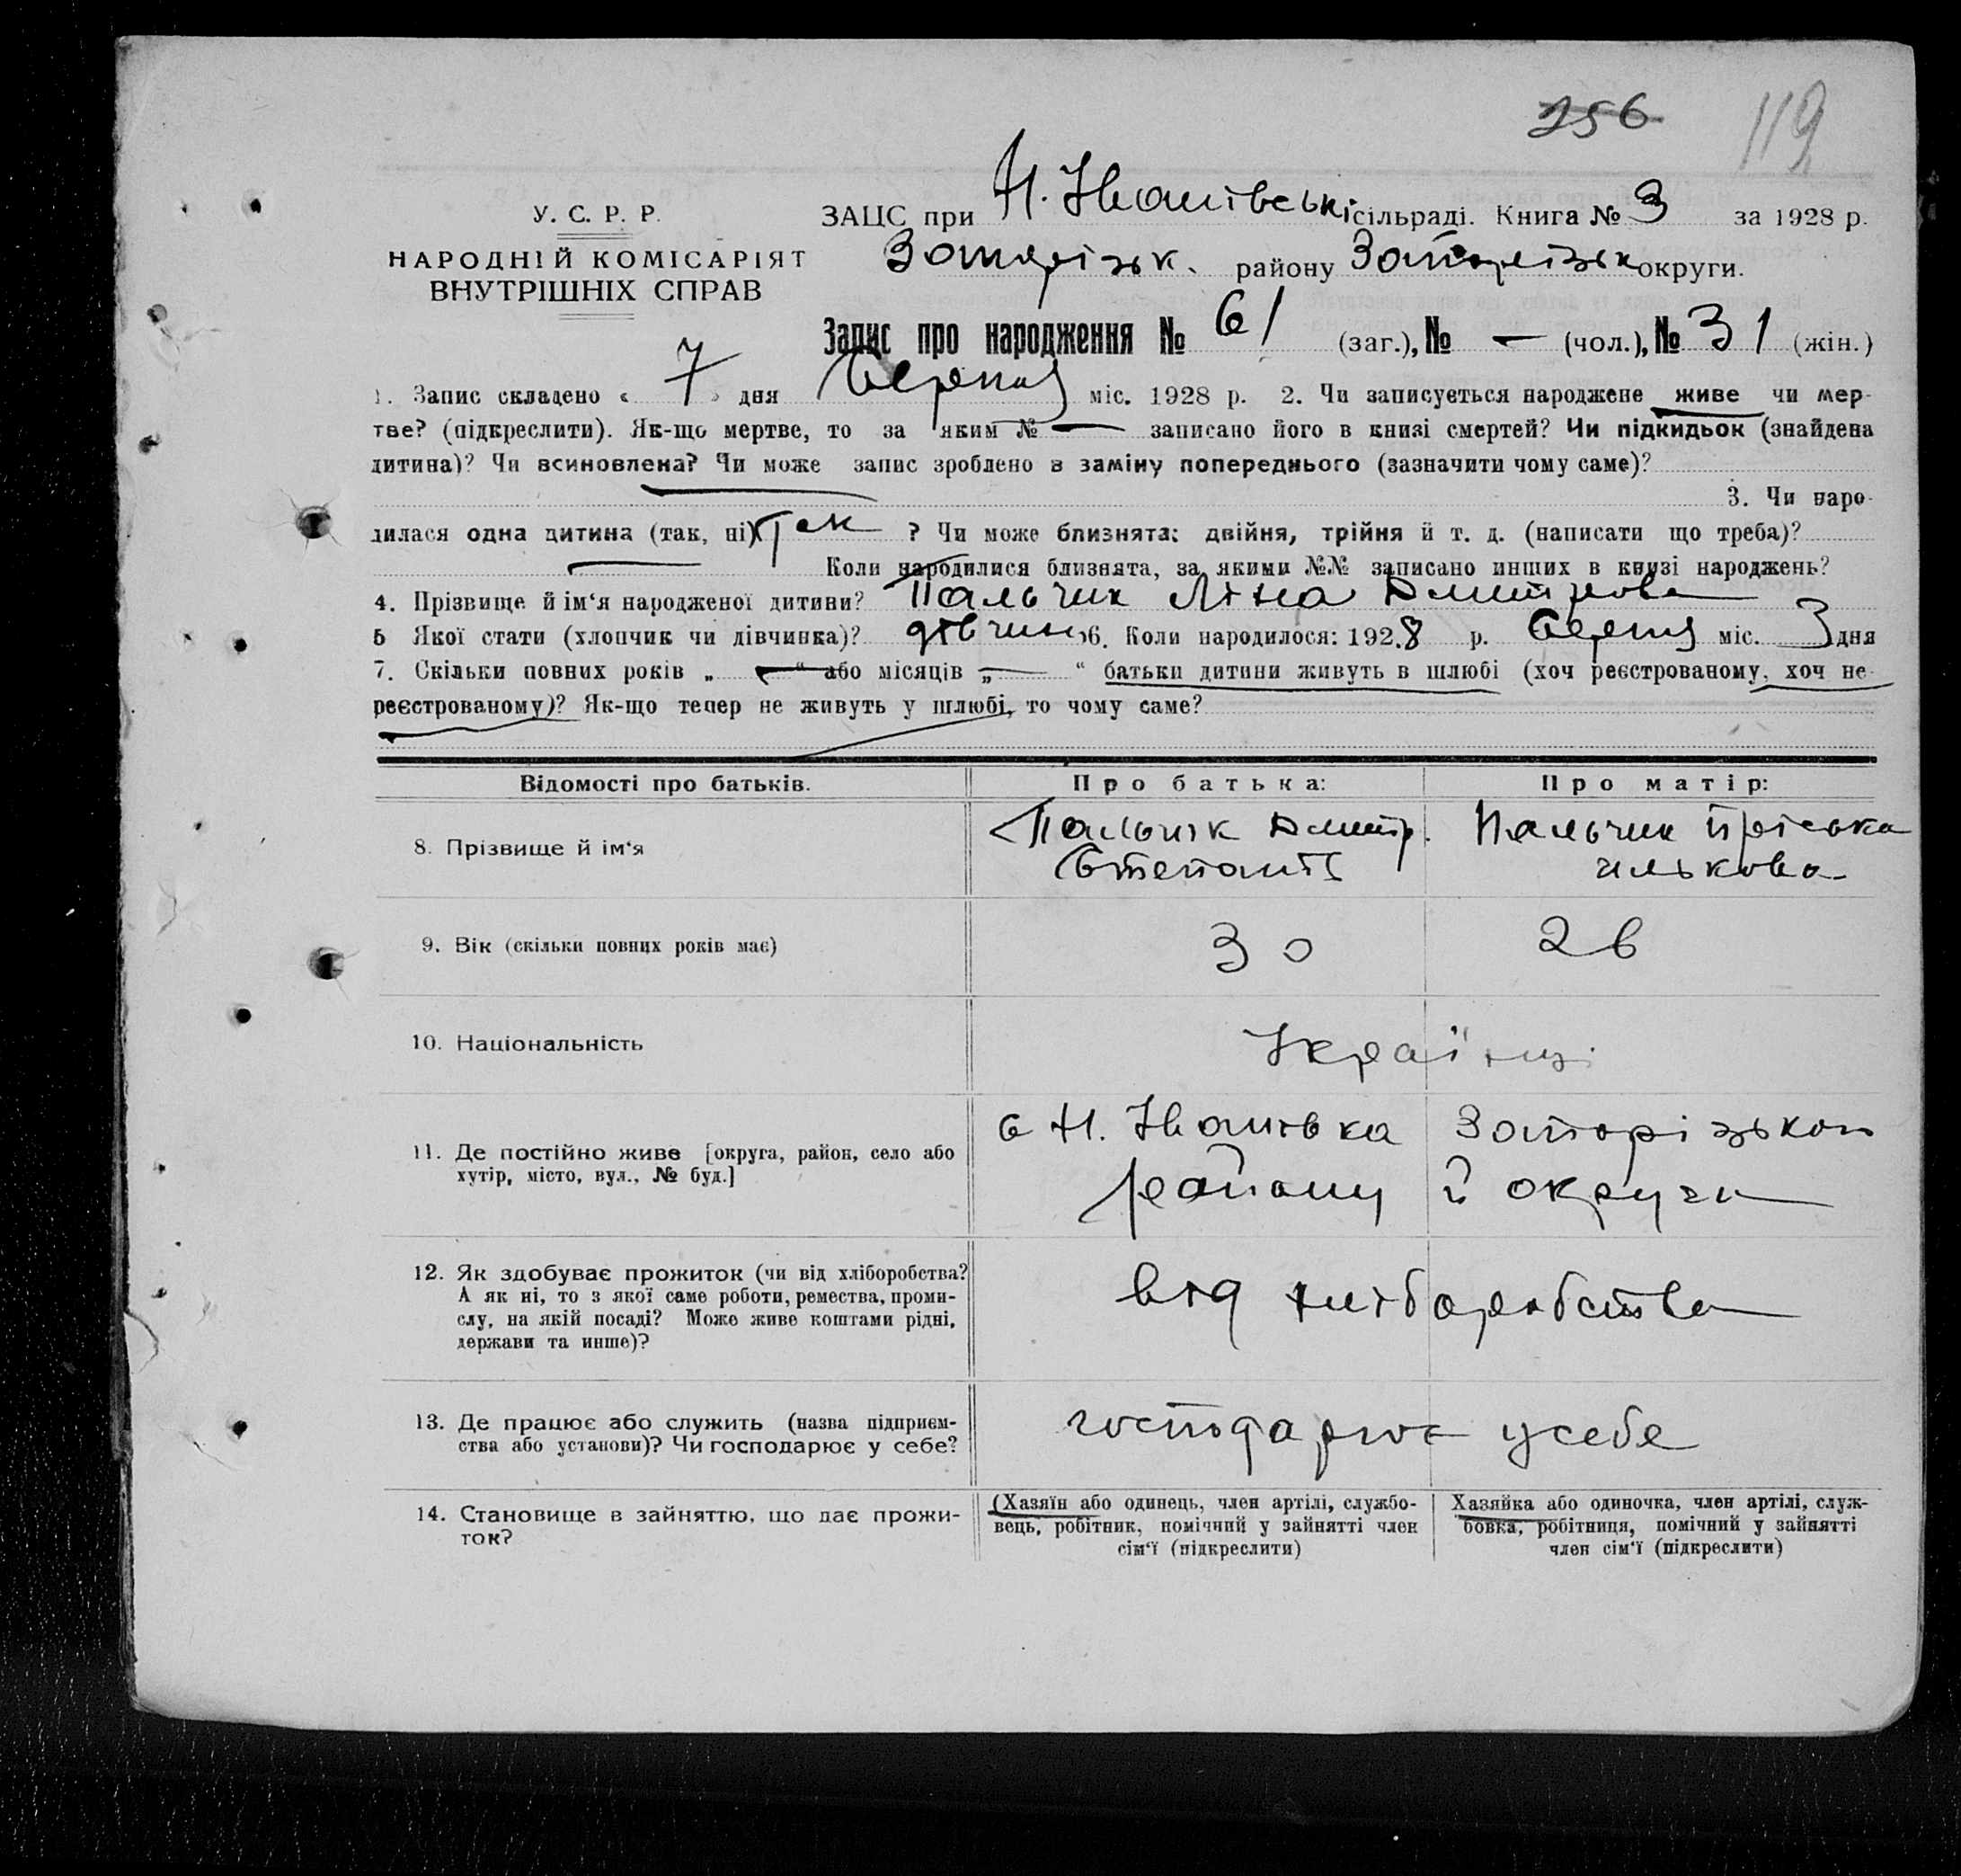 256 119
У. С. Р. Р.
НАРОДНІЙ КОМІСАРІЯТ
ВНУТРІШНІХ СПРАВ
ЗАЦС при Н. Іванівські сільраді. Книга № 3 за 1928 р.
Запорізьк. району Запорізьк округи.
Запис про народження № 61 (заг.), № — (чол.), № 31 (жін.)
1. Запис складено « 7 » дня березня міс. 1928 р. 2. Чи записується народжене живе чи мер-
тве? (підкреслити). Як-що мертве, то за яким № — записано його в книзі смертей? Чи підкидьок (знайдена
дитина)? Чи всиновлена? Чи може запис зроблено в заміну попереднього (зазначити чому саме)?
3. Чи наро-
дилася одна дитина (так, ні) так ? Чи може близнята: двійня, трійня й т. д. (написати що треба)?
— Коли народилися близнята, за якими №№ записано инших в книзі народжень?
4. Прізвище й ім'я народженої дитини? Пальчик Ліна Дмитрова
5 Якої стати (хлопчик чи дівчинка)? дівчин 6. Коли народилося: 1928 р. березня міс. 3 дня
7. Скільки повних років „ — “ або місяців „ — “ батьки дитини живуть в шлюбі (хоч реєстрованому, хоч не-
реєстрованому)? Як-що тепер не живуть у шлюбі, то чому саме?
Відомості про батьків. Про батька: Про матір:
8. Прізвище й ім'я Пальчик Дмитр. Пальчик Пріська
Степанів Илькова
9. Вік (скільки повних років має) 30 26
10. Національність Українці
11. Де постійно живе [округа, район, село або
хутір, місто, вул., № буд.]
с Н. Іванівка Запорізького
району й округи
12. Як здобуває прожиток (чи від хліборобства?
А як ні, то з якої саме роботи, ремества, проми-
слу, на якій посаді? Може живе коштами рідні,
держави та инше)?
від хліборобства
13. Де працює або служить (назва підприєм-
ства або установи)? Чи господарює у себе?
господарює у себе
14. Становище в зайняттю, що дає прожи-
ток?
(Хазяїн або одинець, член артілі, службо-
вець, робітник, помічний у зайнятті член
сім'ї (підкреслити)
Хазяйка або одиночка, член артілі, служ-
бовка, робітниця, помічний у зайнятті
член сім'ї (підкреслити)